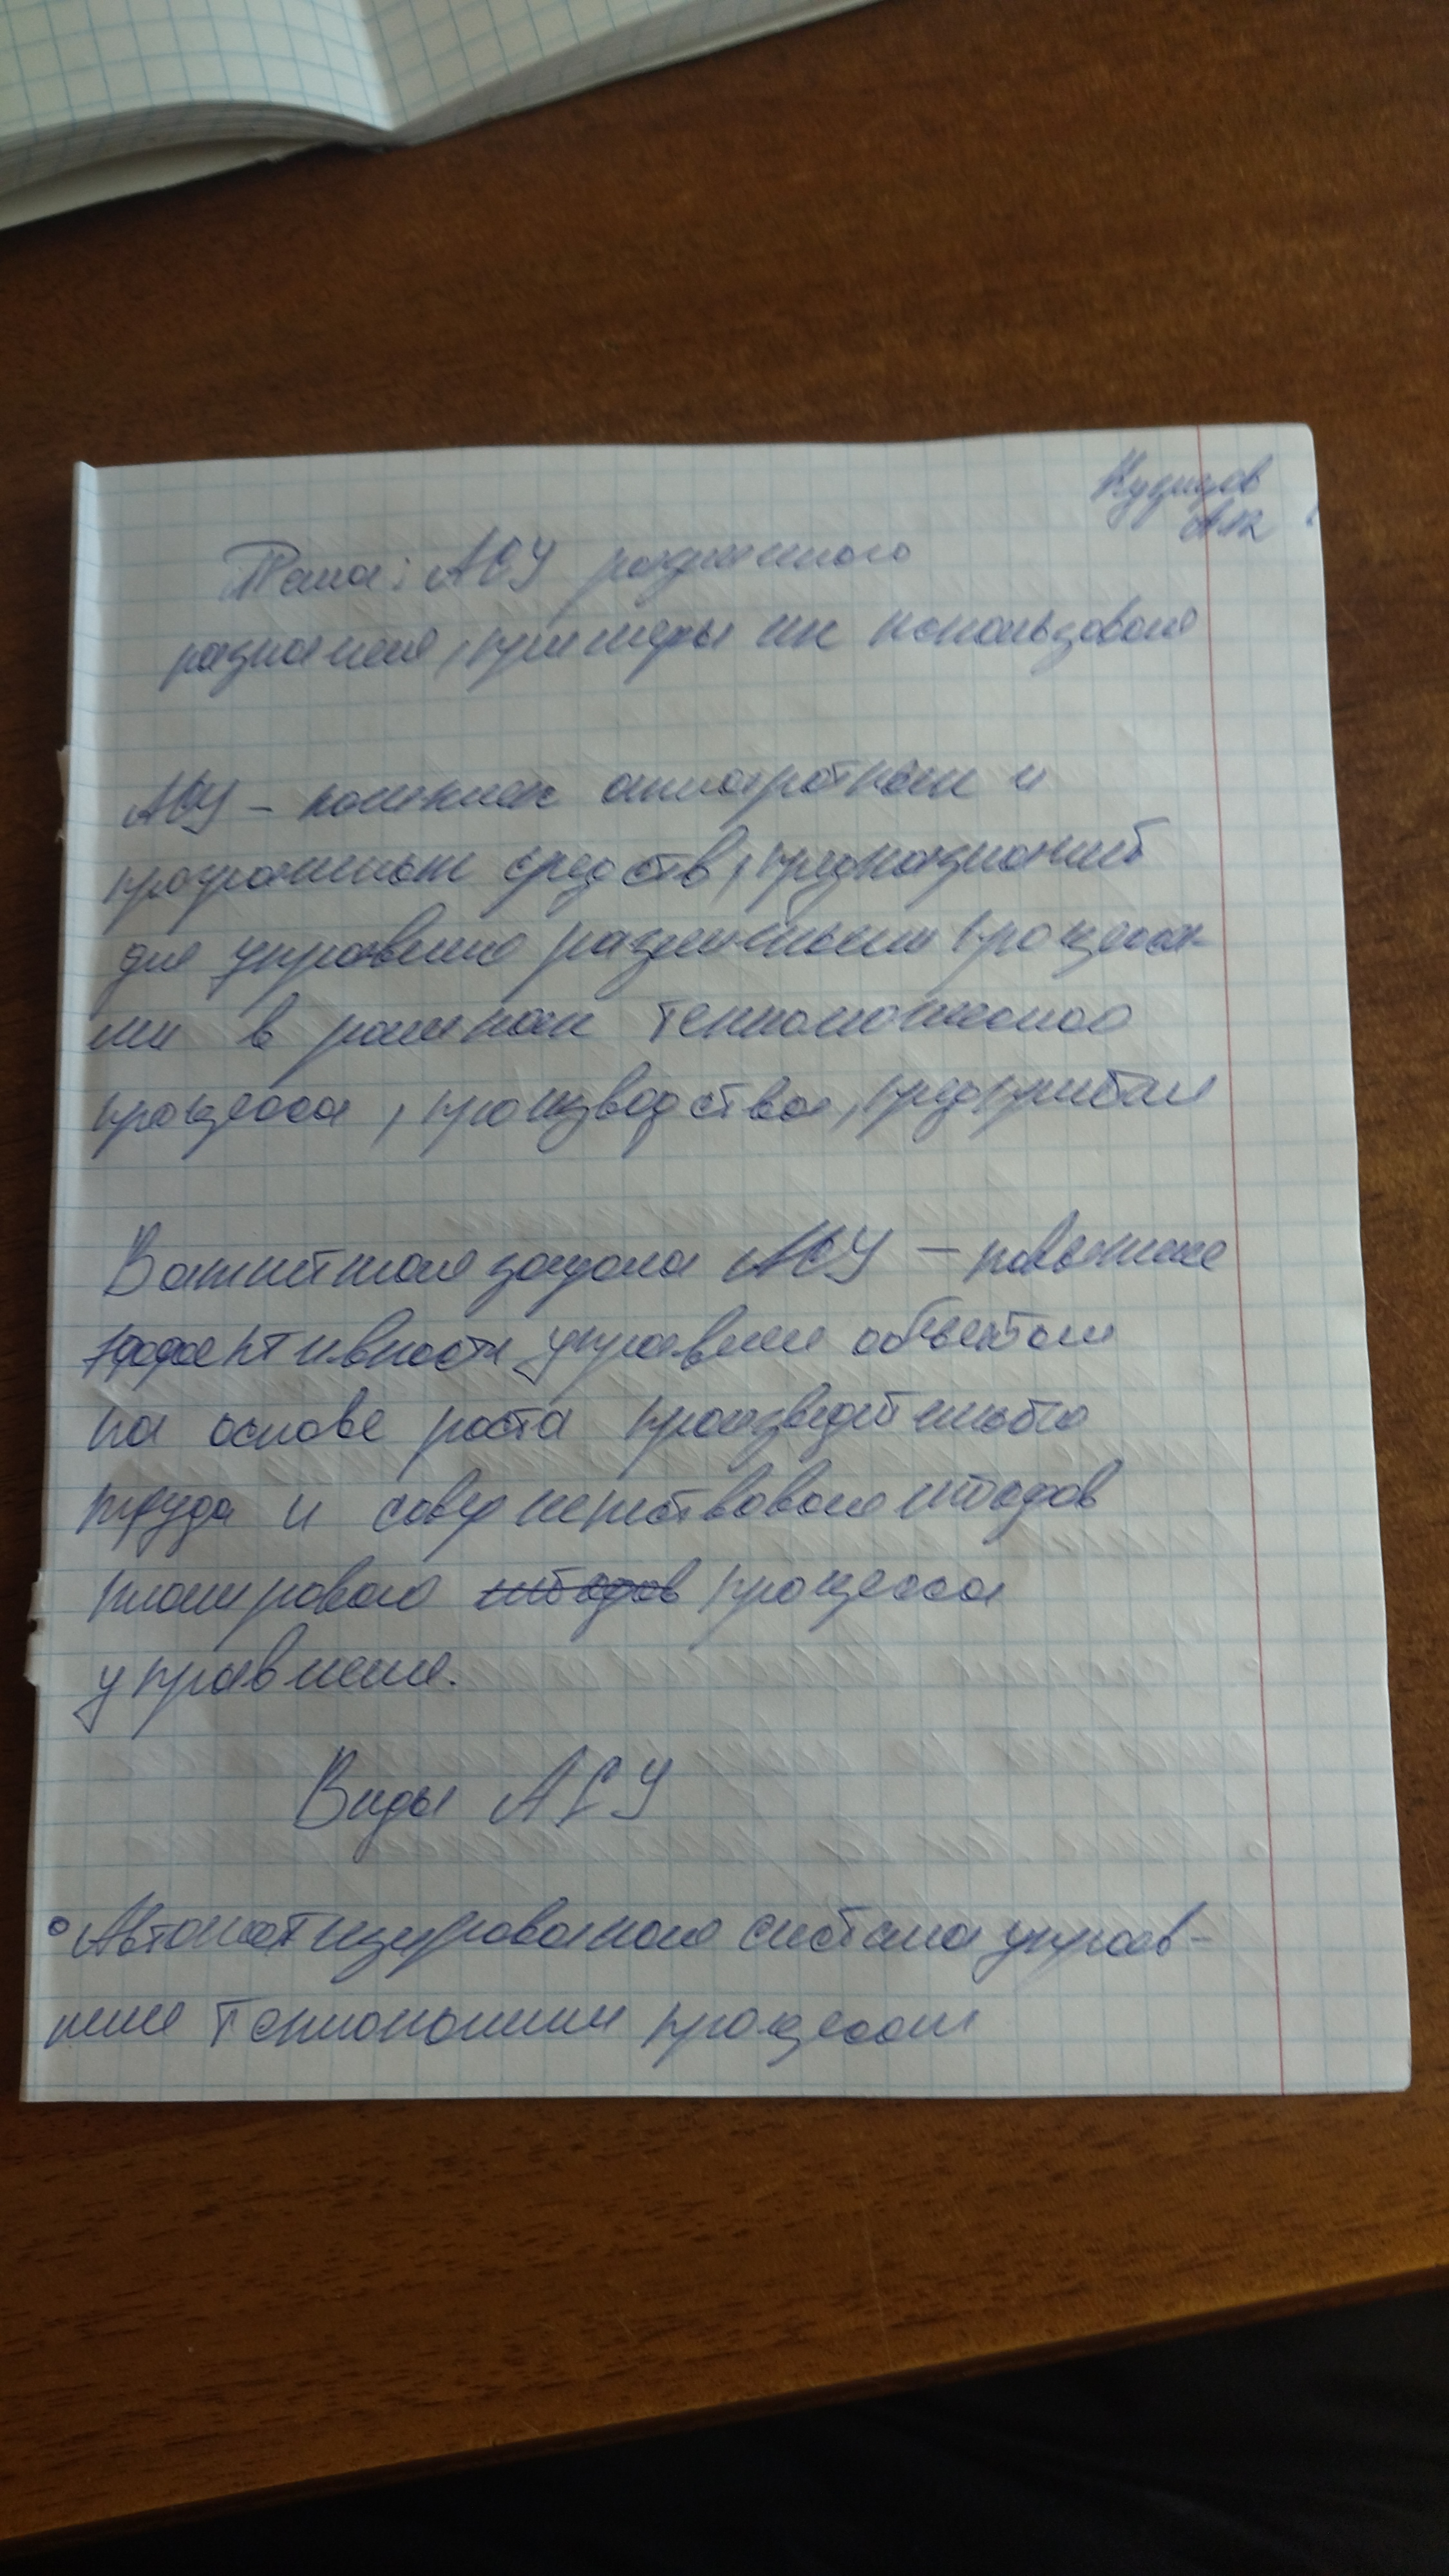 Кузнецов
Тема: АСУ различного
назначения, примеры их использования
АСУ – комплекс аппаратных и
программных средств, предназначений
для управления различными процесса
ми в рамках технологического
процесса, производства, предприятия
Важнейшая задача АСУ – повышение
эффективности управления объектом
на основе роста производительности
труда и совершенствования методов
планирования методов процесса
управления.
Виды АСУ
• Автоматизированная система управ-
ления технологическим процессом